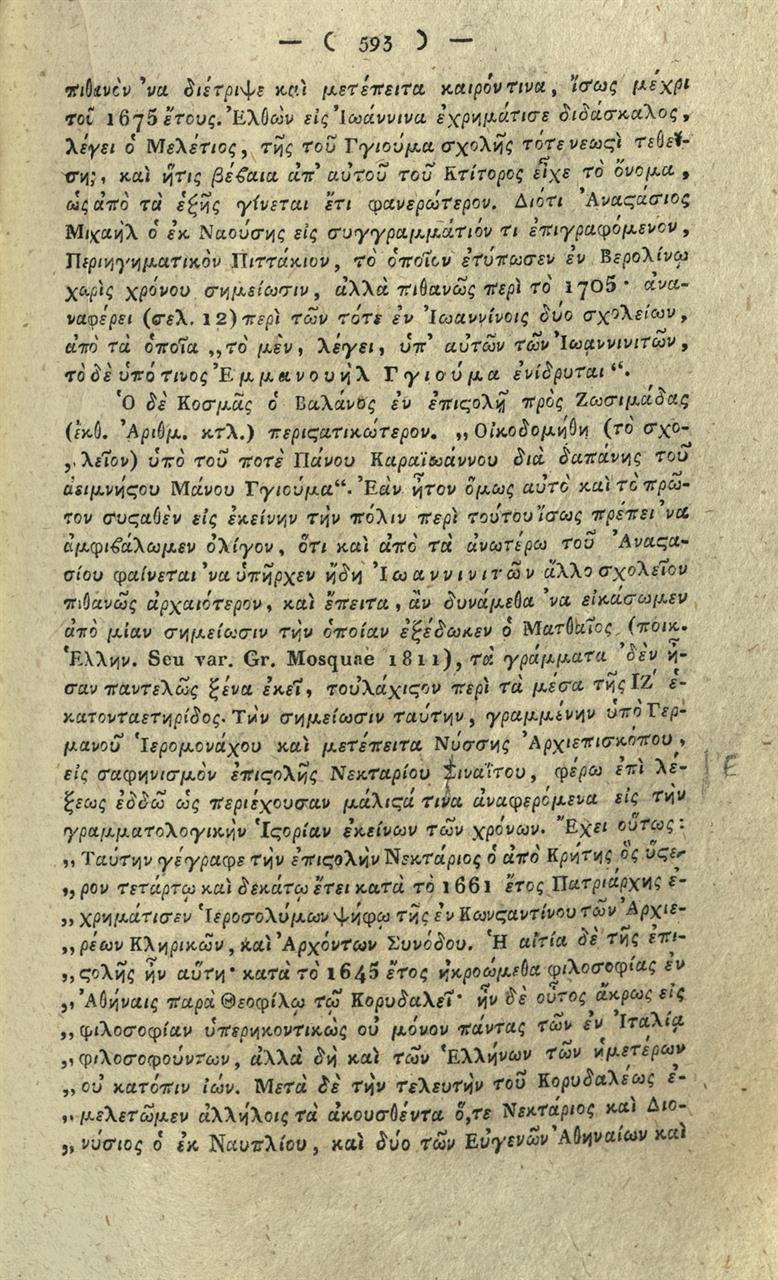 — ( 593 ) —
πιθανὸν 'να διέτριψε καὶ μετέπειτα καιρόν τινα, ἴσως μέχρι
τοῦ 1675 ἔτους. Ἐλθὼν εἰς Ἰωάννινα ἐχρημάτισε διδάσκαλος,
λέγει ὁ Μελέτιος, τῆς τοῦ Γγιούμα σχολῆς τότε νεωςὶ τεθεί-
σης, καὶ ἥτις βέβαια ἀπ' αὐτοῦ τοῦ Κτίτορος εἶχε τὸ ὄνομα,
ὡς ἀπὸ τὰ ἑξῆς γίνεται ἔτι φανερώτερον. Διότι Ἀναςάσιος
Μιχαὴλ ὁ ἐκ Ναούσης εἰς συγγραμμάτιόν τι ἐπιγραφόμενον,
Περιηγηματικὸν Πιττάκιον, τὸ ὁποῖον ἐτύπωσεν ἐν Βερολίνῳ
χωρὶς χρόνου σημείωσιν, ἀλλὰ πιθανῶς περὶ τὸ 1705· ἀνα-
ναφέρει (σελ. 12) περὶ τῶν τότε ἐν Ἰωαννίνοις δύο σχολείων,
ἀπὸ τὰ ὁποῖα „τὸ μὲν, λέγει, ὑπ' αὐτῶν τῶν Ἰωαννινιτῶν,
τὸ δὲ ὑπό τινος Ἐμμανουὴλ Γγιούμα ἐνίδρυται“.
Ὁ δὲ Κοσμᾶς ὁ Βαλάνος ἐν ἐπιςολῇ πρὸς Ζωσιμάδας
(ἐκθ. Ἀριθμ. κτλ.) περιςατικώτερον. „Οἰκοδομήθη (τὸ σχο-
„λεῖον) ὑπὸ τοῦ ποτὲ Πάνου Καραϊωάννου διὰ δαπάνης τοῦ
ἀειμνήςου Μάνου Γγιούμα“. Ἐὰν ἦτον ὅμως αὐτὸ καὶ τὸ πρῶ-
τον συςαθὲν εἰς ἐκείνην τὴν πόλιν περὶ τούτου ἴσως πρέπει 'να
ἀμφιβάλωμεν ὀλίγον, ὅτι καὶ ἀπὸ τὰ ἀνωτέρω τοῦ Ἀναςα-
σίου φαίνεται 'να ὑπῆρχεν ἤδη Ἰωαννινιτῶν ἄλλο σχολεῖον
πιθανῶς ἀρχαιότερον, καὶ ἔπειτα, ἂν δυνάμεθα 'να εἰκάσωμεν
ἀπὸ μίαν σημείωσιν τὴν ὁποίαν ἐξέδωκεν ὁ Ματθαῖος (ποικ.
Ἑλλην. Seu var. Gr. Mosquae 1811), τὰ γράμματα 'δὲν ἦ-
σαν παντελῶς ξένα ἐκεῖ, τοὐλάχιςον περὶ τὰ μέσα τῆς ΙΖ' ἑ-
κατονταετηρίδος. Τὴν σημείωσιν ταύτην, γραμμένην ὑπὸ Γερ-
μανοῦ Ἱερομονάχου καὶ μετέπειτα Νύσσης Ἀρχιεπισκόπου,
εἰς σαφηνισμὸν ἐπιςολῆς Νεκταρίου Σιναΐτου, φέρω ἐπὶ λέ-
ξεως ἐδδῶ ὡς περιέχουσαν μάλιςά τινα ἀναφερόμενα εἰς τὴν
γραμματολογικὴν Ἱςορίαν ἐκείνων τῶν χρόνων. Ἔχει οὕτως:
„Ταύτην γέγραφε τὴν ἐπιςολὴν Νεκτάριος ὁ ἀπὸ Κρήτης ὃς ὕςε-
„ρον τετάρτῳ καὶ δεκάτῳ ἔτει κατὰ τὸ 1661 ἔτος Πατριάρχης ἐ-
„χρημάτισεν Ἱεροσολύμων ψήφῳ τῆς ἐν Κωνςαντίνου τῶν Ἀρχιε-
„ρέων Κληρικῶν, καὶ Ἀρχόντων Συνόδου. Ἡ αἰτία δὲ τῆς ἐπι-
„ςολῆς ἦν αὕτη· κατὰ τὸ 1645 ἔτος ἠκροώμεθα φιλοσοφίας ἐν
„Ἀθήναις παρὰ Θεοφίλῳ τῷ Κορυδαλεῖ· ἦν δὲ οὗτος ἄκρως εἰς
„φιλοσοφίαν ὑπερηκοντικὼς οὐ μόνον πάντας τῶν ἐν Ἰταλίᾳ
„φιλοσοφούντων, ἀλλὰ δὴ καὶ τῶν Ἑλλήνων τῶν ἡμετέρων
„οὐ κατόπιν ἰών. Μετὰ δὲ τὴν τελευτὴν τοῦ Κορυδαλέως ἐ-
„μελετῶμεν ἀλλήλοις τὰ ἀκουσθέντα ὅ,τε Νεκτάριος καὶ Διο-
„νύσιος ὁ ἐκ Ναυπλίου, καὶ δύο τῶν Εὐγενῶν Ἀθηναίων καὶ